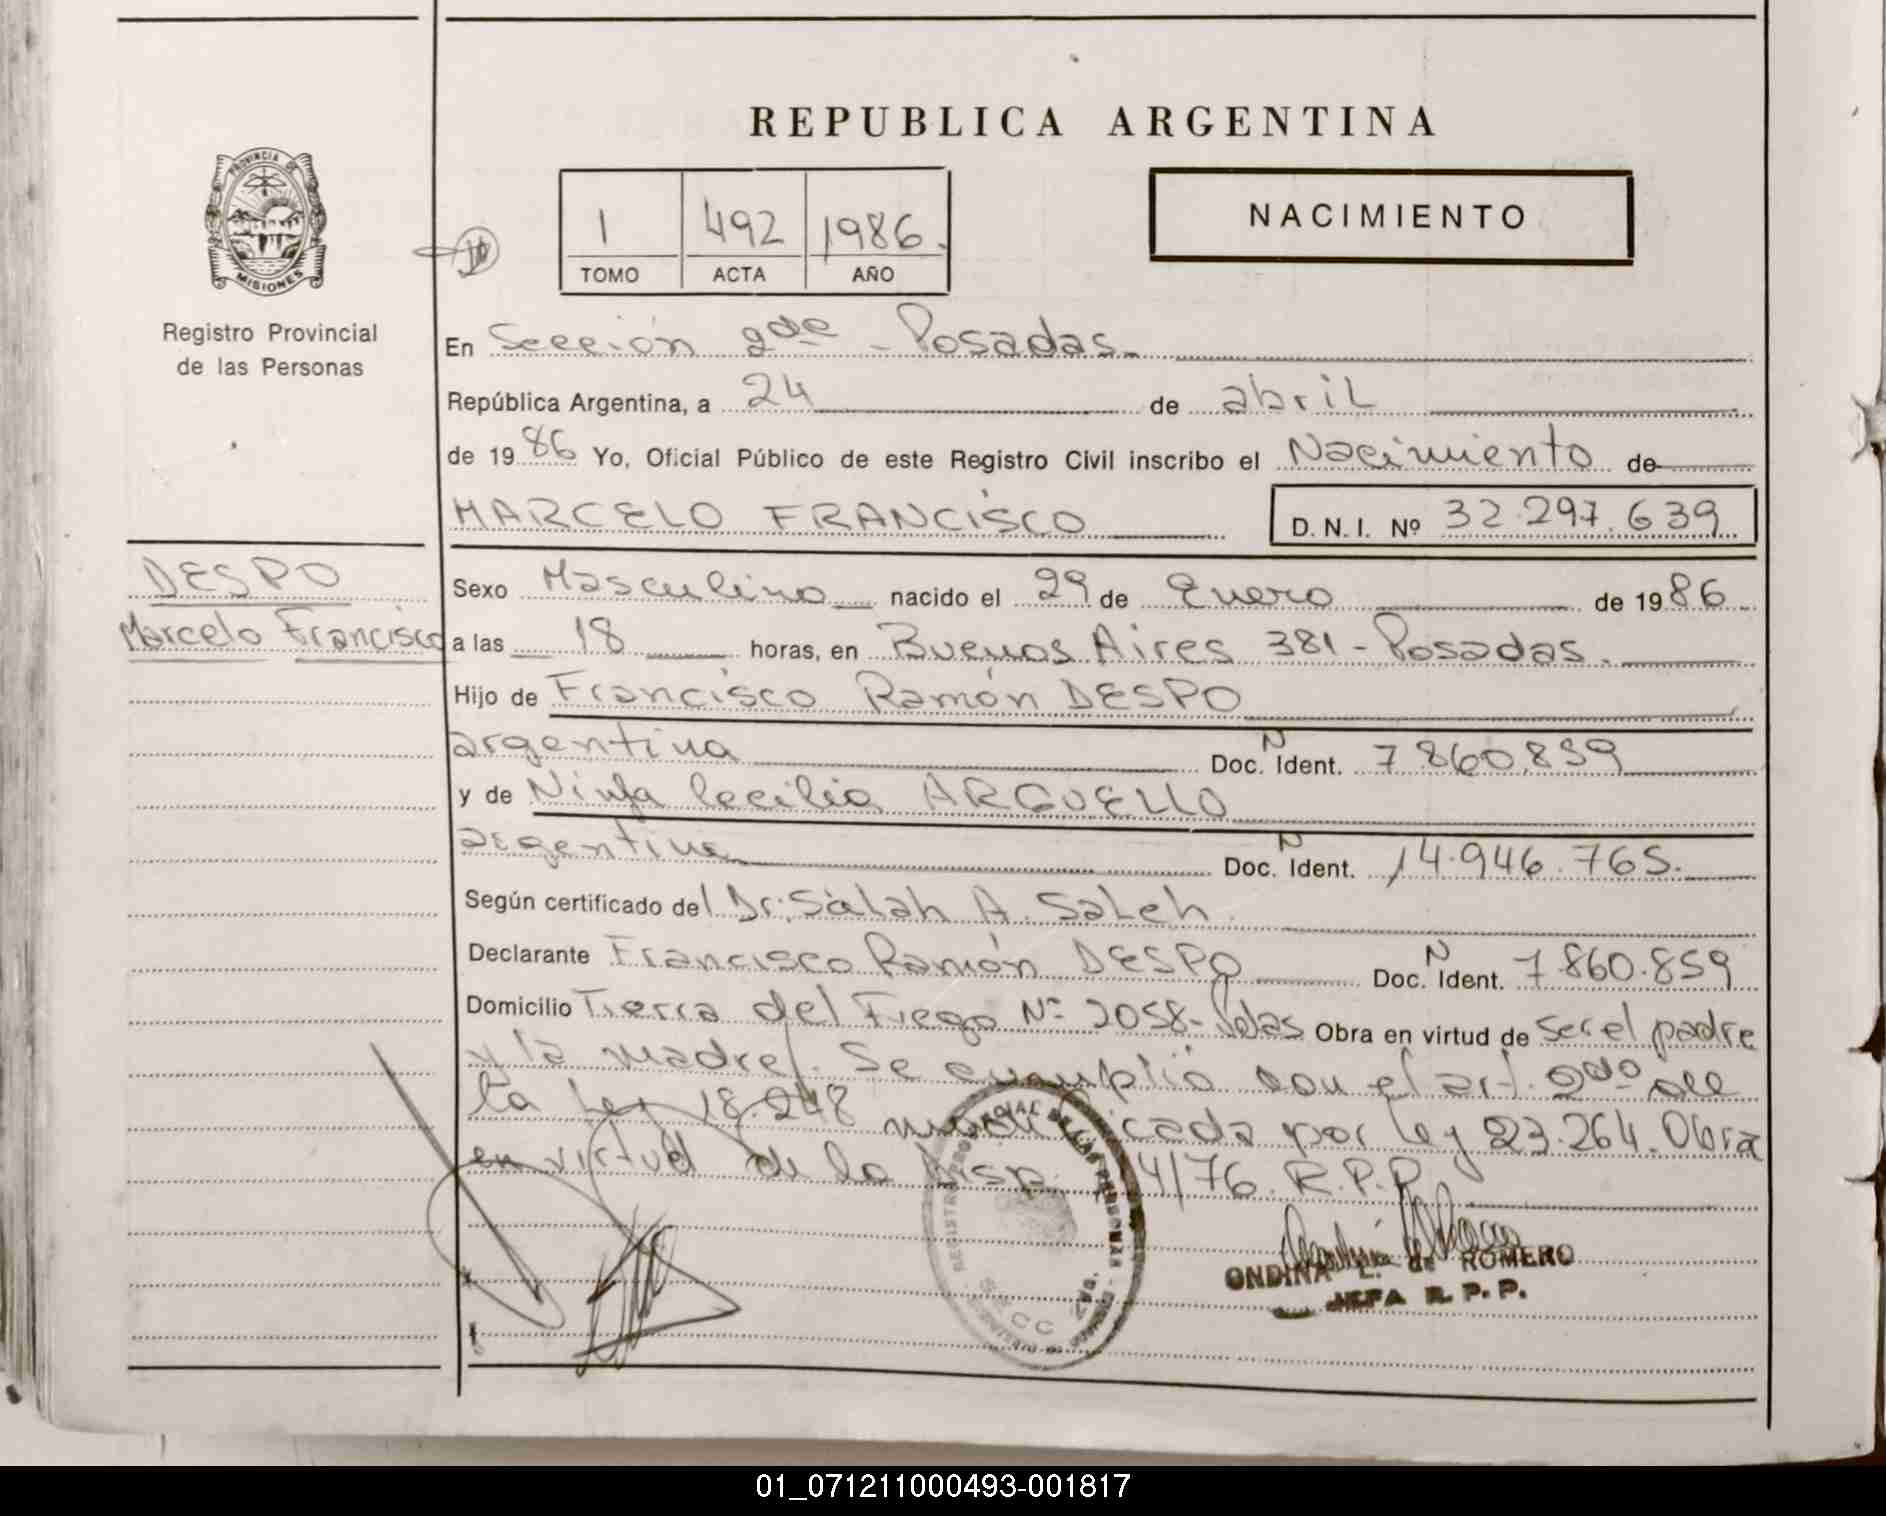 REPUBLICA ARGENTINA
PROVINCIA DE
MISIONES
Registro Provincial
de las Personas
1 492 1986.
TOMO ACTA AÑO
NACIMIENTO
En Sección 2da - Posadas.
República Argentina, a 24 de abril
de 1986 Yo, Oficial Público de este Registro Civil inscribo el Nacimiento de
MARCELO FRANCISCO D.N.I. Nº 32.297.639
DESPO
Marcelo Francisco
Sexo Masculino nacido el 29 de Enero de 1986
a las 18 horas, en Buenos Aires 381 - Posadas.
Hijo de Francisco Ramón DESPO
argentina Doc. N Ident. 7.860.859
y de Ninfa Cecilia ARGUELLO
argentina Doc. N Ident. 14.946.765.
Según certificado del Dr. Sálah A. Saleh.
Declarante Francisco Ramón DESPO Doc. N Ident. 7.860.859
Domicilio Tierra del Fuego Nº 2058-Pdas Obra en virtud de ser el padre
y la madre. Se cumplió con el art. 2do de
la Ley 18.248 modificada por Ley 23.264. Obra
en virtud de la Disp. 4/76. R.P.P.
ONDINA L. de ROMERO
JEFA R.P.P.
01_071211000493-001817